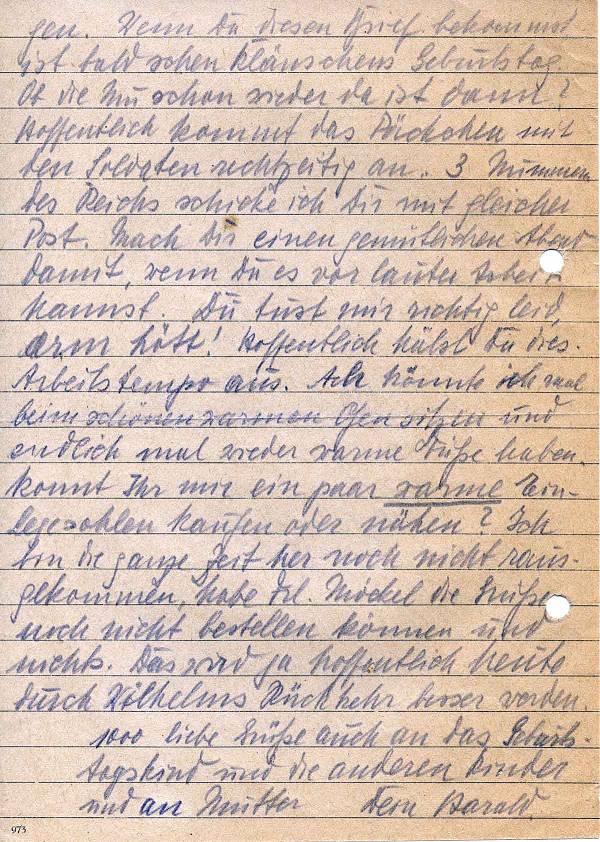 gen. Wenn Du diesen Brief bekommst
ist bald schon Kläuschens Geburtstag.
Ob die Mu schon wieder da ist dann?
Hoffentlich kommt das Päckchen mit
den Soldaten rechtzeitig an. 3 Nummern
des Reichs schicke ich Dir mit gleicher
Post. Mach Dir einen gemütlichen Abend
damit, wenn Du es vor lauter Arbeit
kannst. Du tust mir richtig leid,
arm Hött! Hoffentlich hälst Du dies.
Arbeitstempo aus. Ach könnte ich mal
beim schönen warmen Ofen sitzen und
endlich mal wieder warme Füße haben.
Könnt Ihr mir ein paar warme Ein-
legesohlen kaufen oder nähen? Ich
bin die ganze Zeit her noch nicht raus-
gekommen, habe Frl. Möckel die Grüße
noch nicht bestellen können und
nichts. Das wird ja hoffentlich heute
durch Wilhelms Rückkehr besser werden.
1000 liebe Grüße auch an das Geburts-
tagskind und die anderen Kinder
und an Mutter Dein Harald.
973